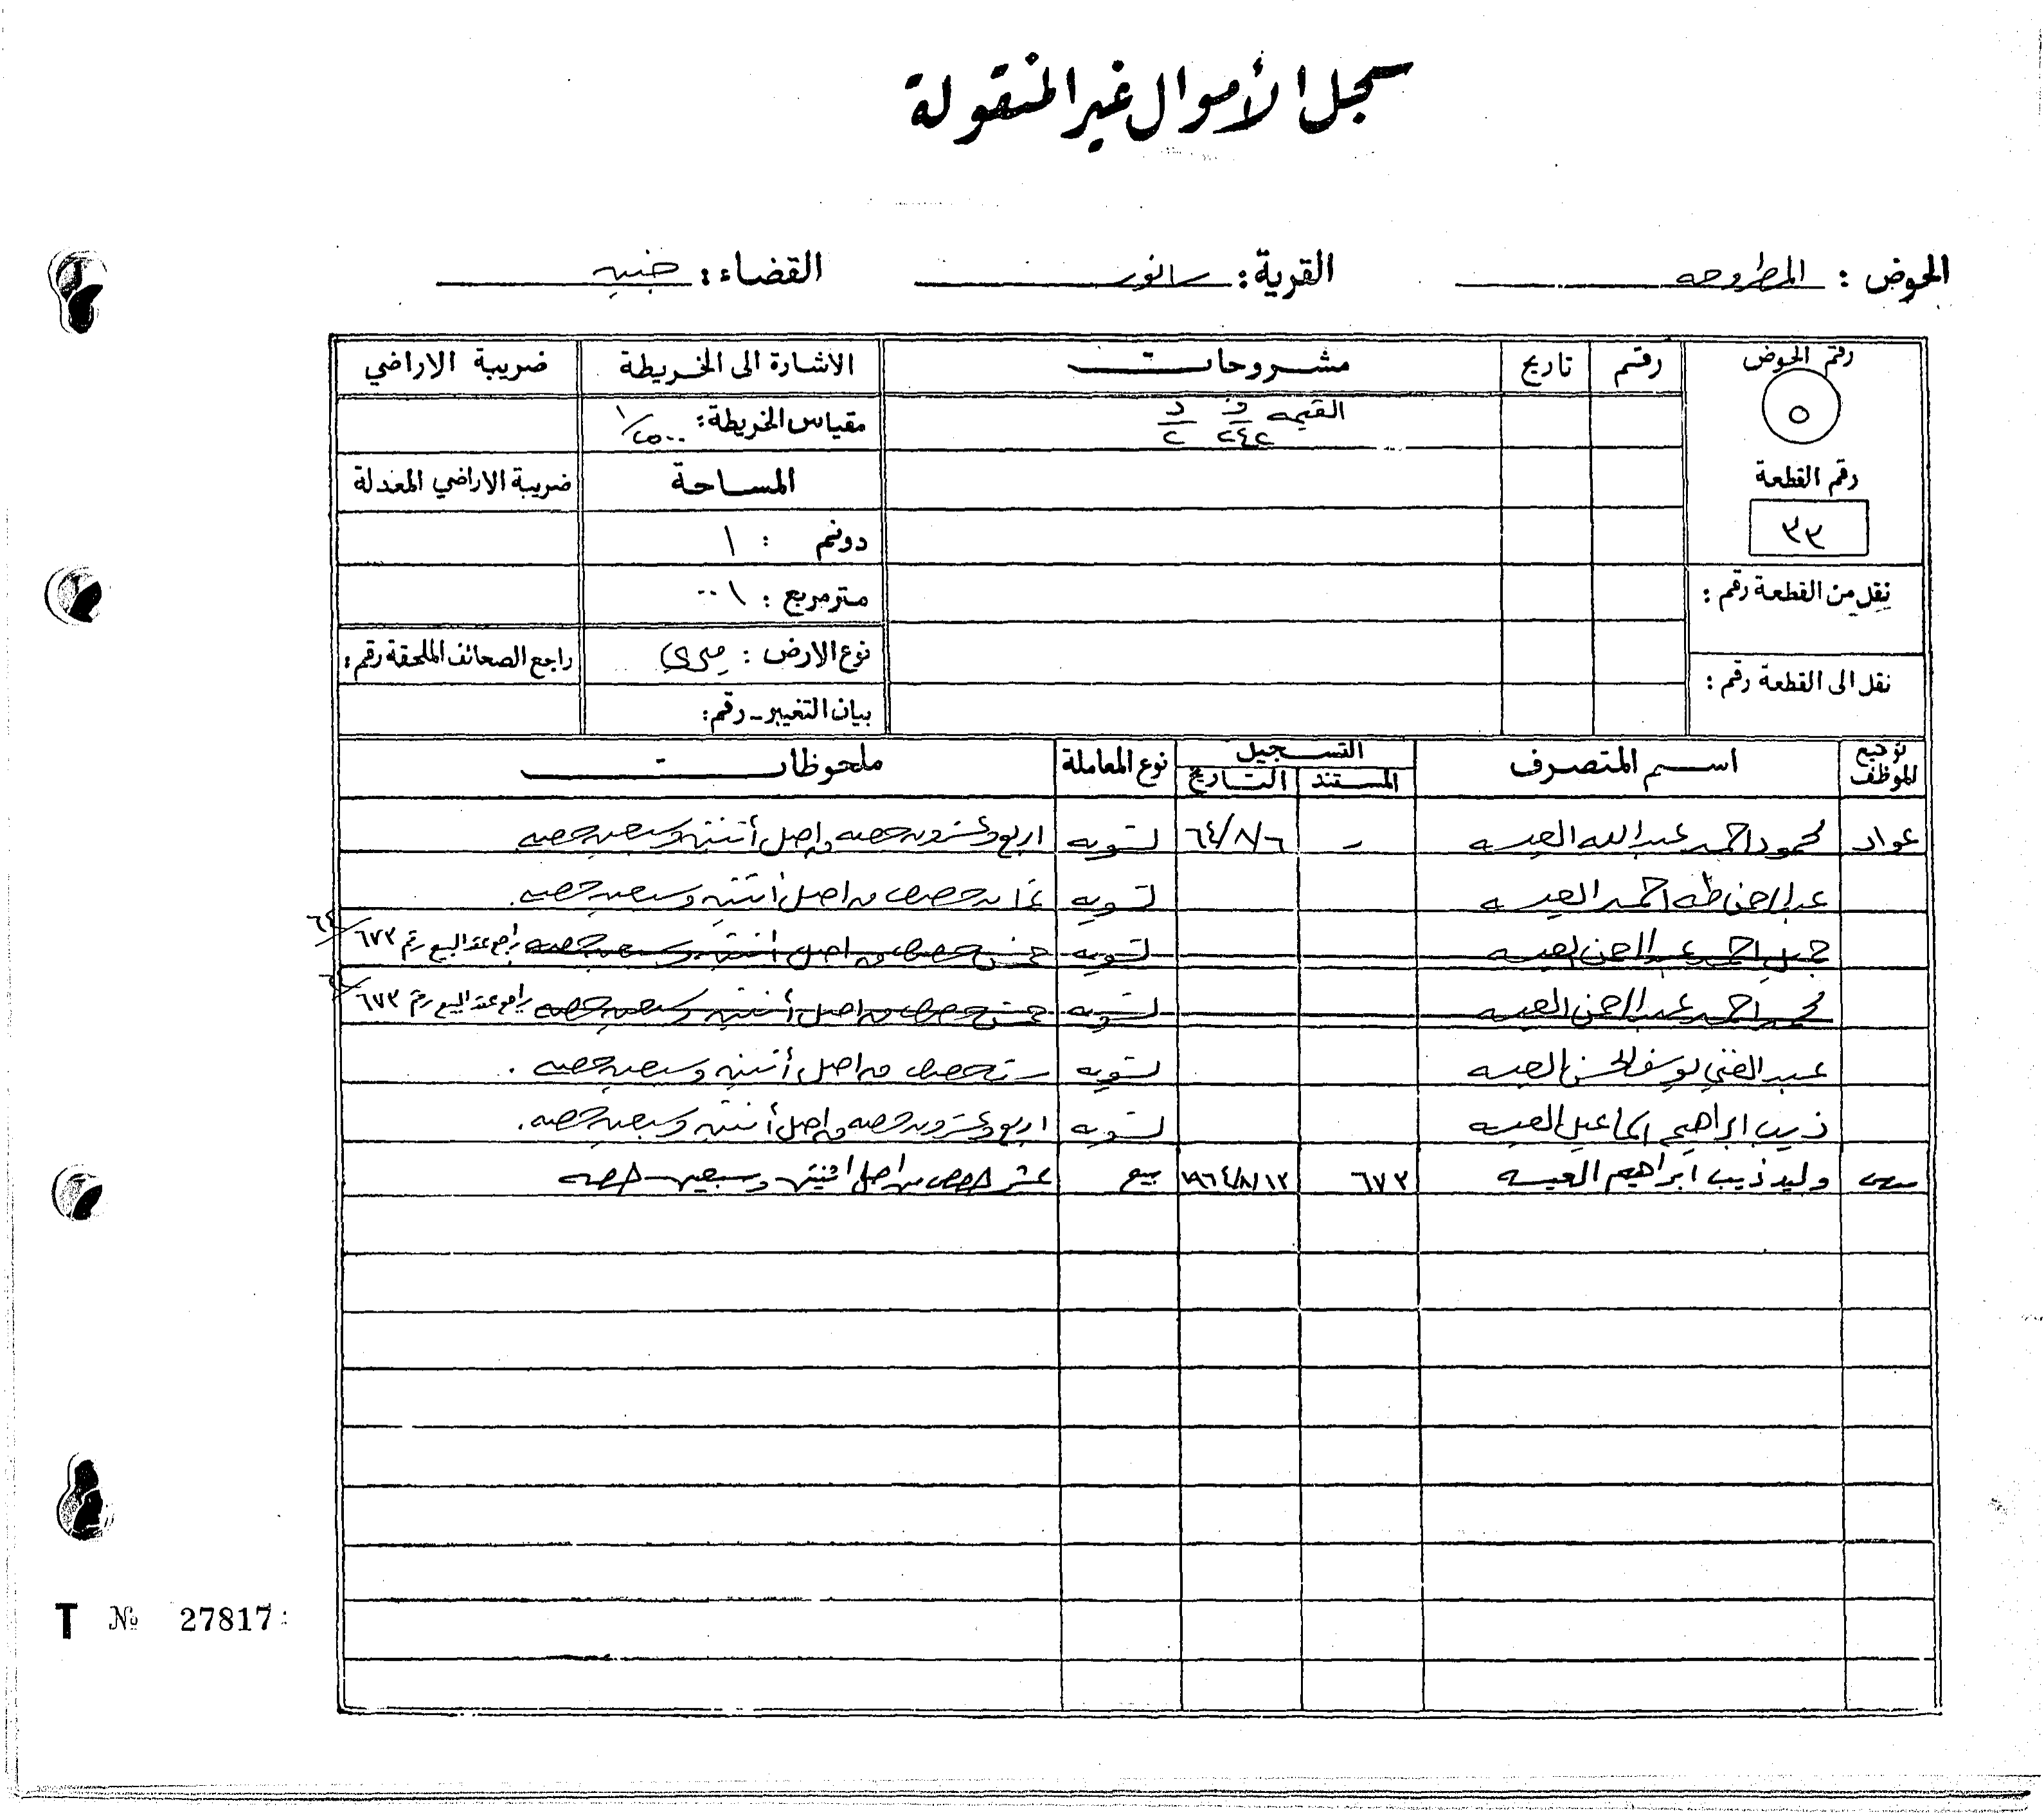 سجل الأموال غير المنقولة
الحوض : المطروحه القرية : سانور القضاء : جنين
رقم الحوض رقم تاريخ مشروحات الاشارة الى الخريطة ضريبة الاراضي
٥ القيمه ف د مقياس الخريطة : ١/٢٥٠٠
٢٤٢ ٢
رقم القطعة المساحة ضريبة الاراضي المعدلة
٣٣ دونم : ١
نقل من القطعة رقم : متر مربع : ١٠٠
نوع الارض : ميري راجع الصحائف الملحقة رقم :
نقل الى القطعة رقم : بيان التغيير - رقم :
توقيع الموظف اسم المتصرف التسجيل نوع المعاملة ملحوظات
المستند التاريخ
عواد محمود احمد عبد الله العيسه - ٦٤/٨/٦ تسويه اربع وعشرون حصه من اصل أثنتين وسبعين حصه
عبد الرحمن طه احمد العيسه تسويه ثمان حصص من اصل أثنتين وسبعين حصه .
جميل احمد عبد الرحمن العيسه تسويه خمس حصص من اصل أثنتين وسبعين حصه راجع عقد البيع رقم ٦٧٣/٦٤
محمد احمد عبد الرحمن العيسه تسويه خمس حصص من اصل أثنتين وسبعين حصه راجع عقد البيع رقم ٦٧٣
عبد الغني يوسف الحسن العيسه تسويه ست حصص من اصل أثنتين وسبعين حصه .
ذيب ابراهيم اسماعيل العيسه تسويه اربع وعشرون حصه من اصل أثنتين وسبعين حصه .
وليد ذيب ابراهيم العيسه ٦٧٣ ١٩٦٤/٨/١٣ بيع عشر حصص من اصل اثنتين وسبعين حصه
T № 27817